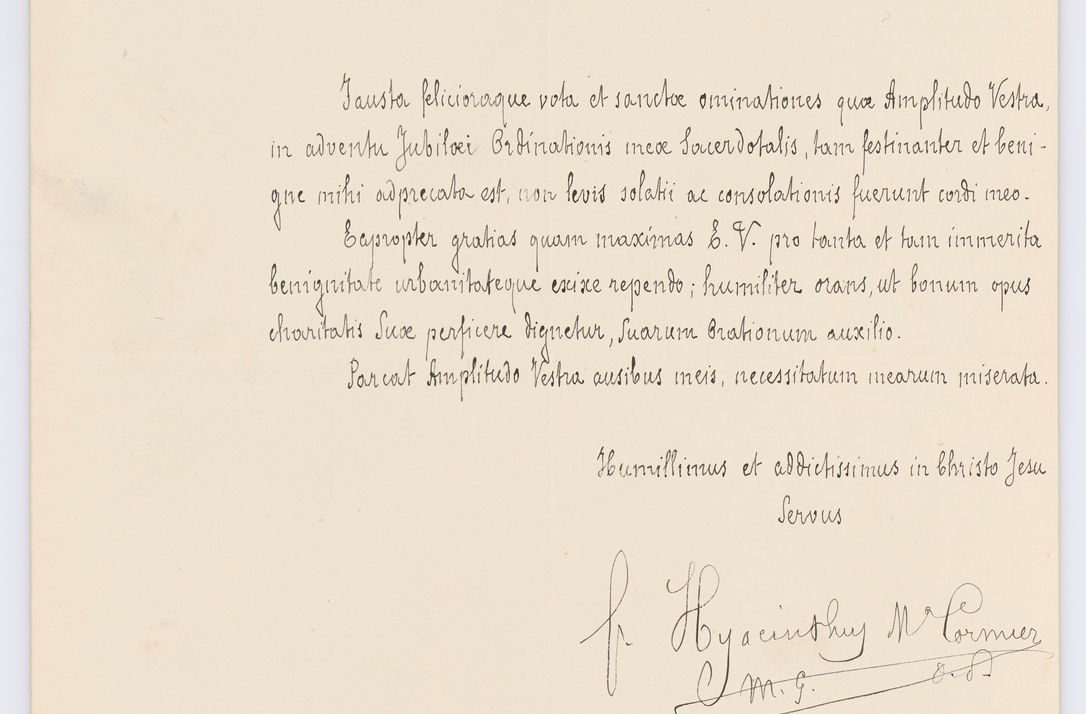 Fausta felicioraque vota et sanctæ ominationes quæ Amplitudo Vestra,
in adventu Jubilæi Ordinationis meæ Sacerdotalis, tam festinanter et beni-
gne mihi adprecata est, non levis solatii ac consolationis fuerunt cordi meo.
Eapropter gratias quam maximas E. V. pro tanta et tam immerita
benignitate urbanitateque enixe rependo; humiliter orans, ut bonum opus
charitatis Suæ perficere dignetur, Suarum Orationum auxilio.
Parcat Amplitudo Vestra ausibus meis, necessitatum mearum miserata.
Humillimus et addictissimus in Christo Jesu
Servus
fr. Hyacinthus Mª Cormier
M. G. O.P.